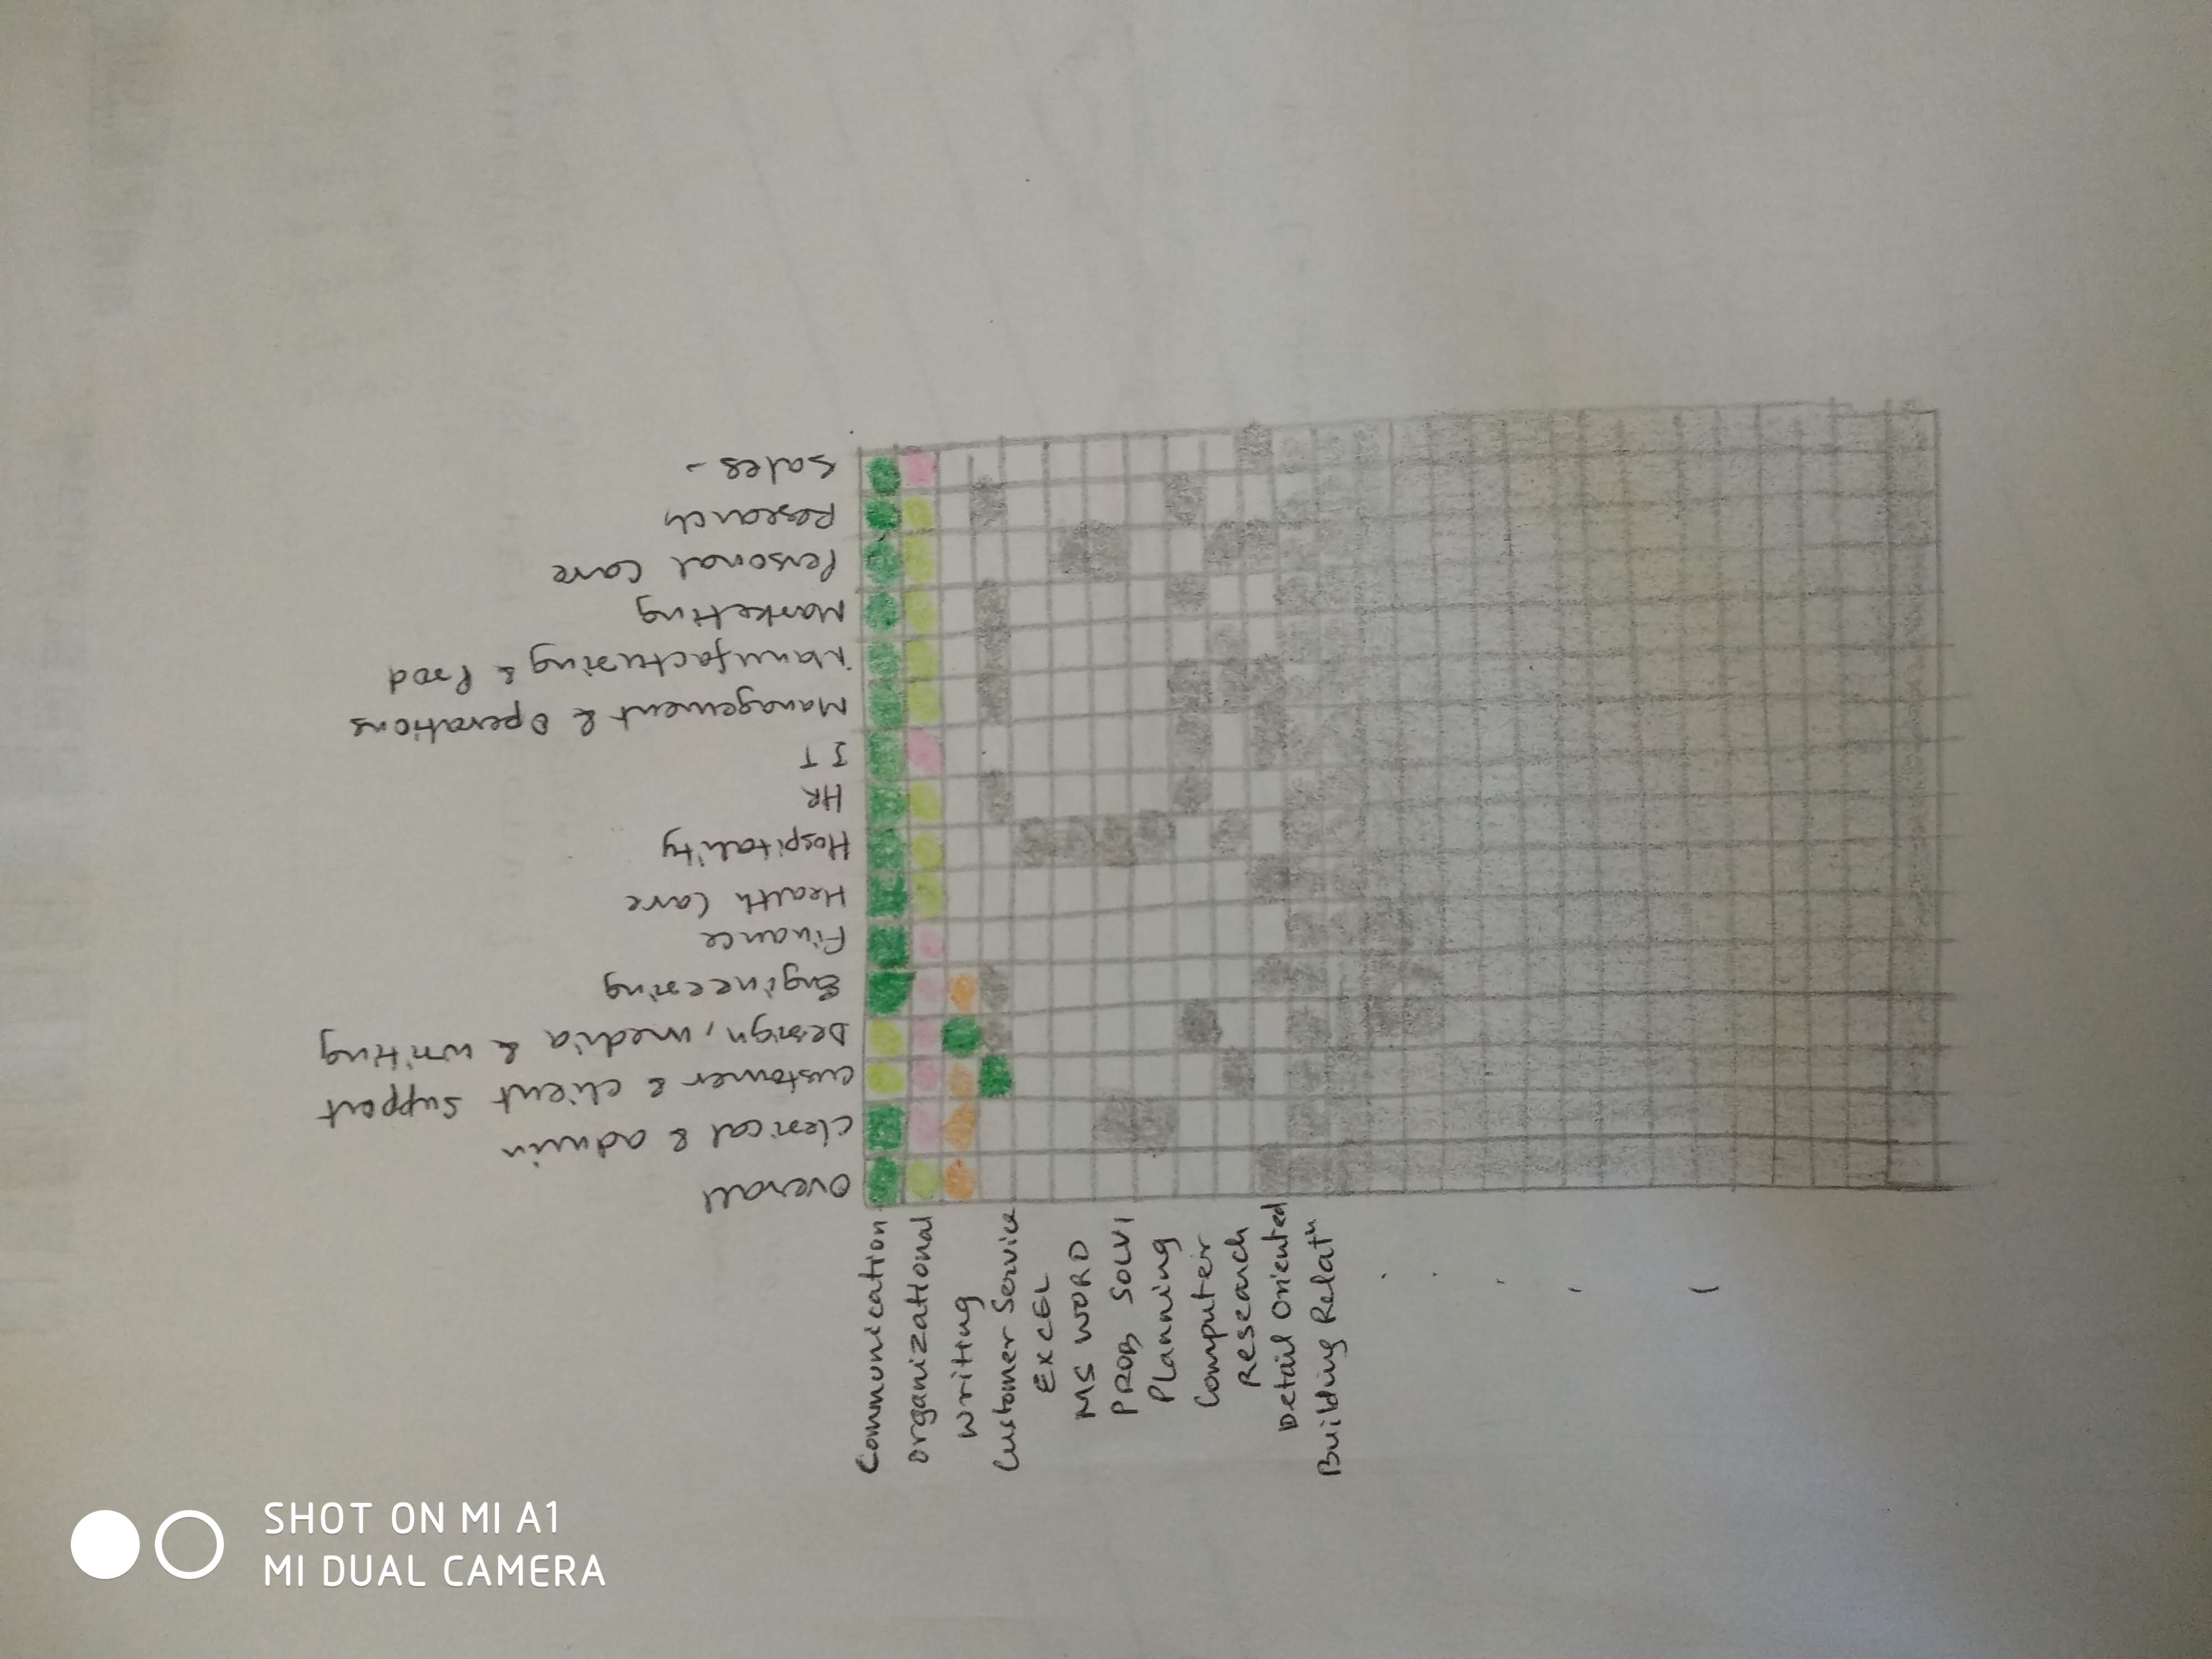 SHOT ON MI A1
MI DUAL CAMERA
Overall
Clerical & admin
Customer & client support
Design, media & writing
Engineering
Finance
Health Care
Hospitality
HR
IT
Management & Operations
Manufacturing & Prod
Marketing
Personal Care
Research
Sales
Communication
Organizational
Writing
Customer Service
EXCEL
MS WORD
PROB SOLVI
Planning
Computer
Research
Detail Oriented
Building Relatn